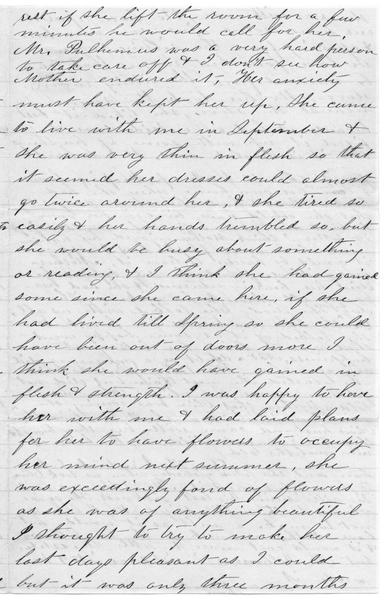 rest if she left the room for a few
minutes he would call for her.
Mr. Polhemus was a very hard person
to take care off & I don't see how
Mother endured it, Her anxiety
must have kept her up. She came
to live with me in September &
she was very thin in flesh so that
it seemed her dresses could almost
go twice around her, & she tired so
easily & her hands trembled so, but
she would be busy about something
or reading, & I think she had gained
some since she came here, if she
had lived till Spring so she could
have been out of doors more I
think she would have gained in
flesh & strength. I was happy to have
her with me & had laid plans
for her to have flowers to occupy
her mind next summer, she
was exceedingly fond of flowers
as she was of anything beautiful
I thought to try to make her
last days pleasant as I could
but it was only three months